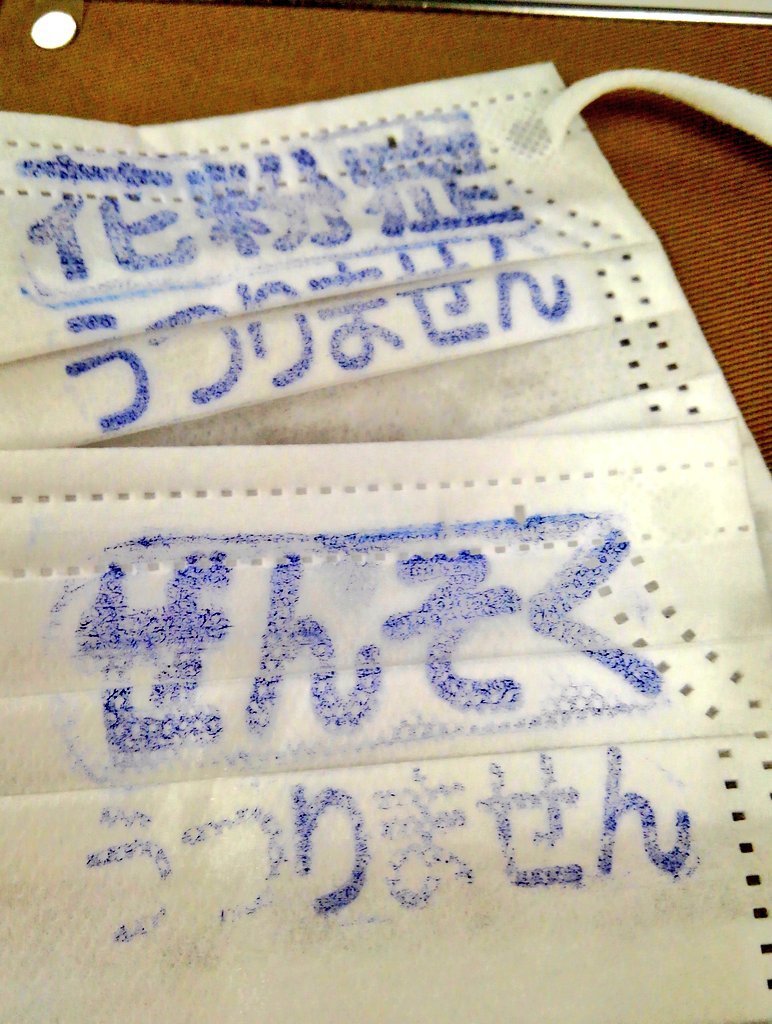 花粉症
うつりません
ぜんそく
うつりません